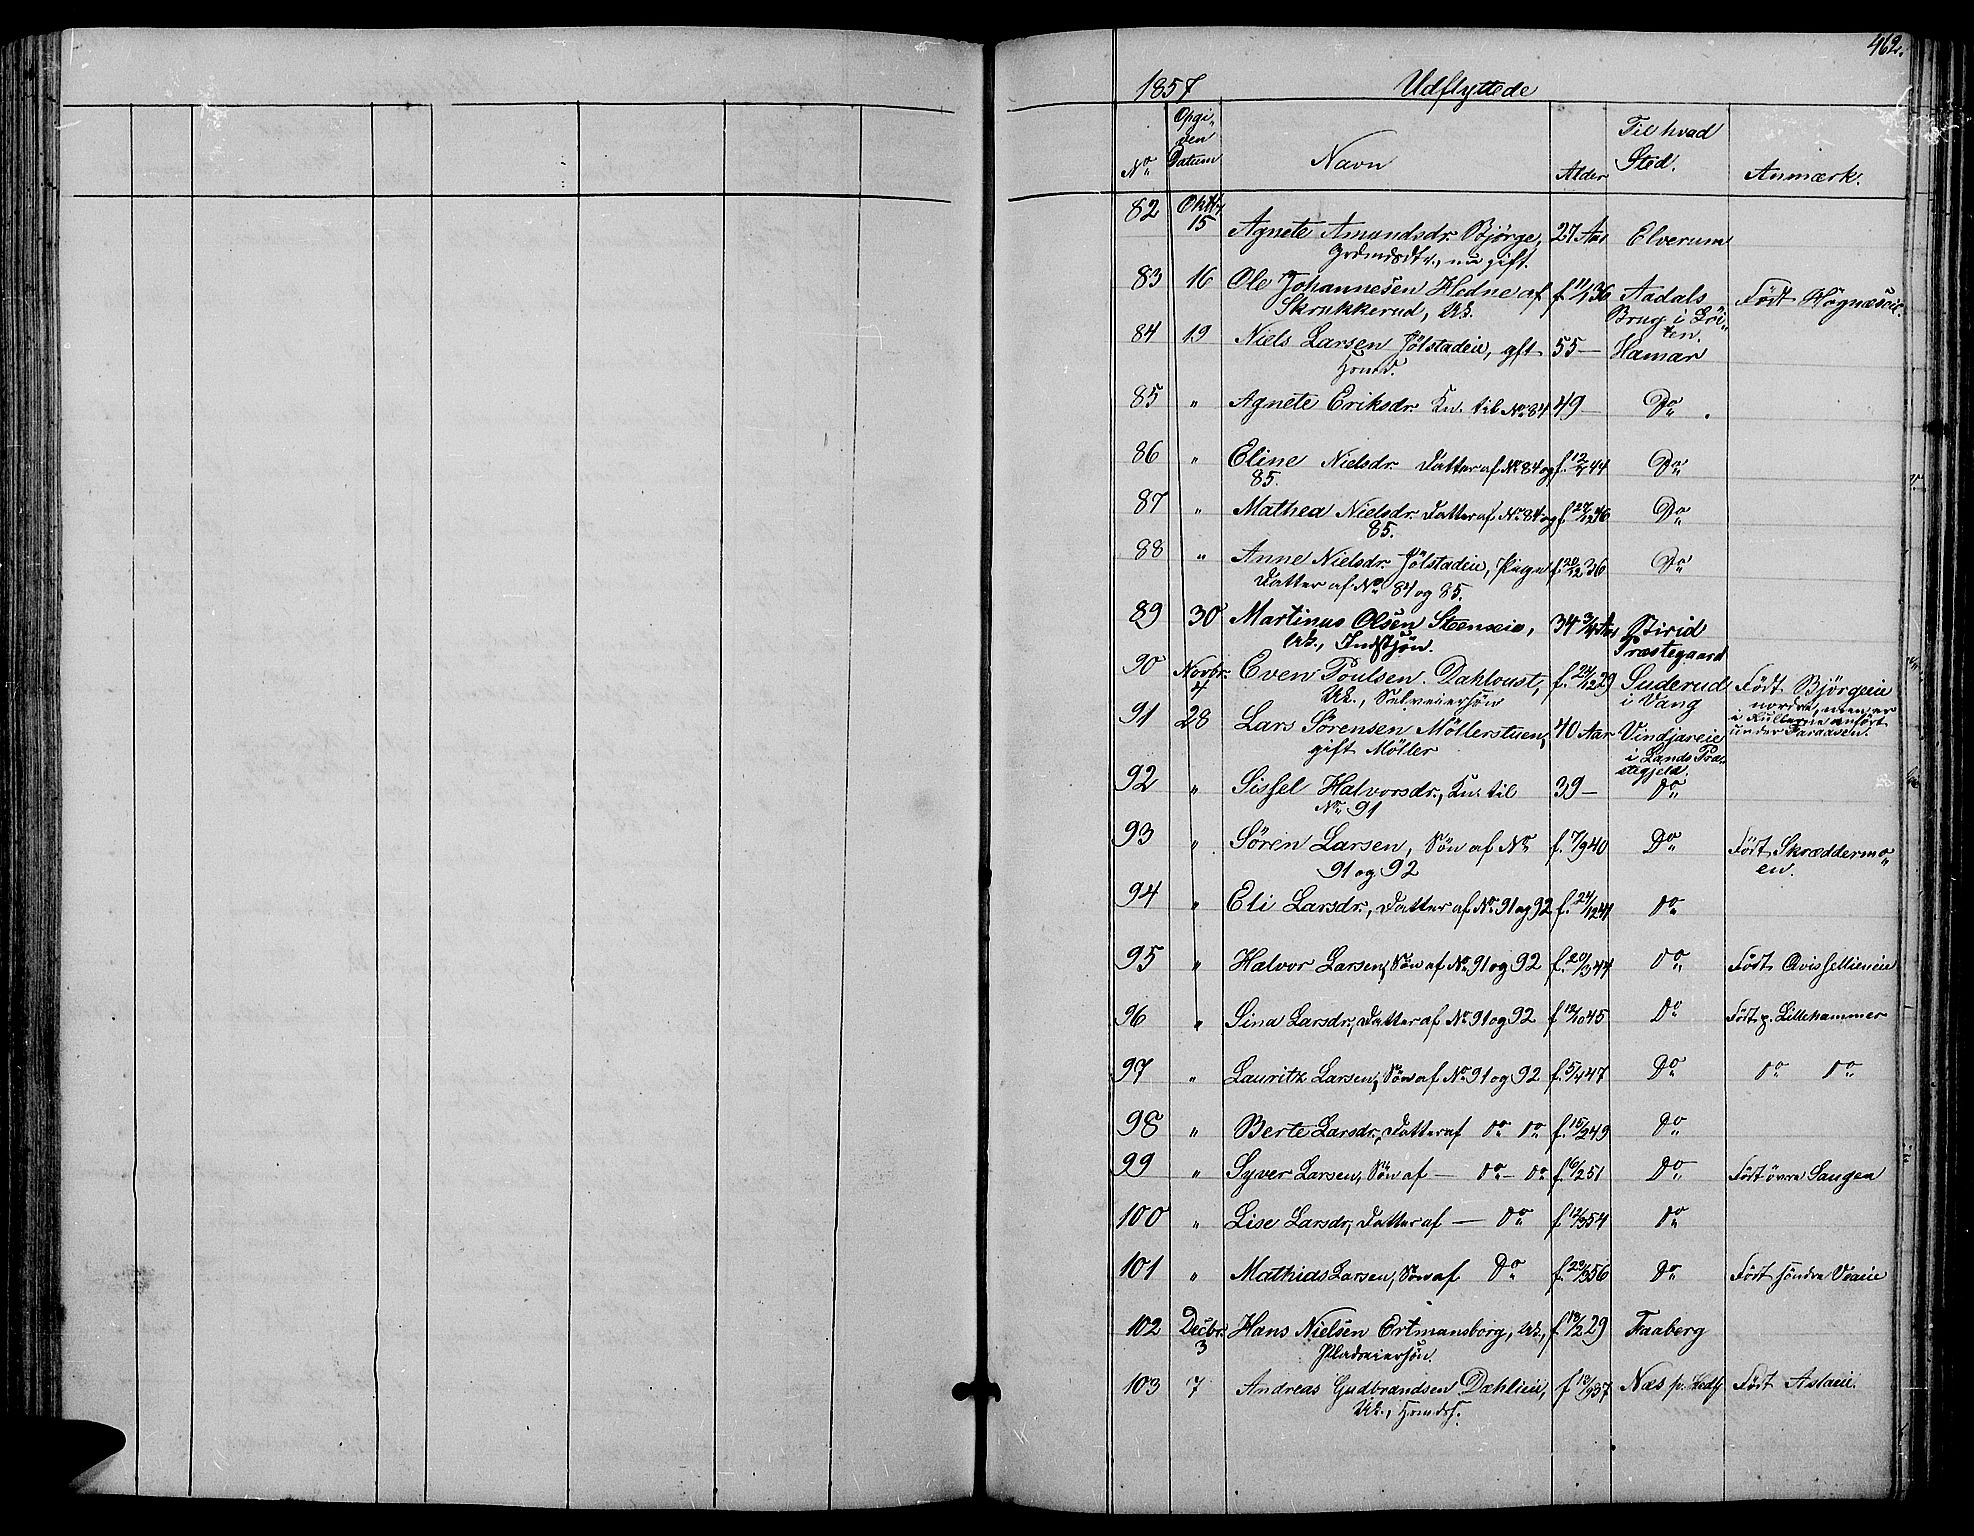 462.
1857 Udflyttede
No Opgi-
ven
Datum Navn Alder Til hvad
Sted. Anmærk.
82 Oktbr
15 Agnete Amundsdr. Bjørge, 27 Aar Elverum
nu gift.
83 16 Ole Johannesen Hedne af f. 11/1 36 Aadals Født
Skrukkerud, Uk. Brug i Løi-
ten.
84 19 Niels Larsen Jølstadeie, gft 55 — Hamar
Hmd.
85 " Agnete Eriksdr. Kn. til No 84 49 — Do
86 " Eline Nielsdr. Datter af No 84 og Do
85.
87 " Mathea Nielsdr. Datter af No 84 og f. 27/12 46 Do
85.
88 " Anne Nielsdr. Jølstadeie, Pige f. 20/12 36 Do
Datter af No 84 og 85.
89 30 Martinus Olsen Steenseie, 34 3/4 Aar Birid
Uk., Indstsøn. Præstegaard
90 Novbr.
4 Even Poulsen Dahloust, f. 24/12 29 Suderud Født Bjørgeie
Uk., Selveiersøn i Vang nordre, men er
i Rullerne anført
under Faraasen.
91 28 Lars Sørensen Møllerstuen, 40 Aar Vindjareie
gift Møller i Lands Præ-
stegjeld.
92 " Sissel Halvorsdr., Kn. til 39 — Do
No 91
93 " Søren Larsen, Søn af No f. 7/9 40 Do Født Skræddermo-
91 og 92 en.
94 " Eli Larsdr., Datter af No 91 og 92 f. 24/12 41 Do
95 " Halvor Larsen, Søn af No 91 og 92 f. 20/3 44 Do Født Ovisfellieneie
96 " Sina Larsdr., Datter af No 91 og 92 f. 12/10 45 Do Født p. Lillehammer
97 " Lauritz Larsen, Søn af No 91 og 92 f. 5/4 47 Do Do Do
98 " Berte Larsdr., Datter af Do Do f. 15/2 49 Do
99 " Syver Larsen, Søn af — Do — Do f. 16/2 51 Do Født øvre Saugen
100 " Lise Larsdr., Datter af — Do f. 12/3 54 Do
101 " Mathias Larsen, Søn af Do f. 29/3 56 Do Født søndre Veaeie
102 Decbr.
3 Hans Nielsen Ertmansborg, Uk., 29 Faaberg
Pladseiersøn.
103 7 Andreas Gudbrandsen Dæhlieie, 37 Næs p. Hedm. Født Aslaeie.
Uk., Hmds.